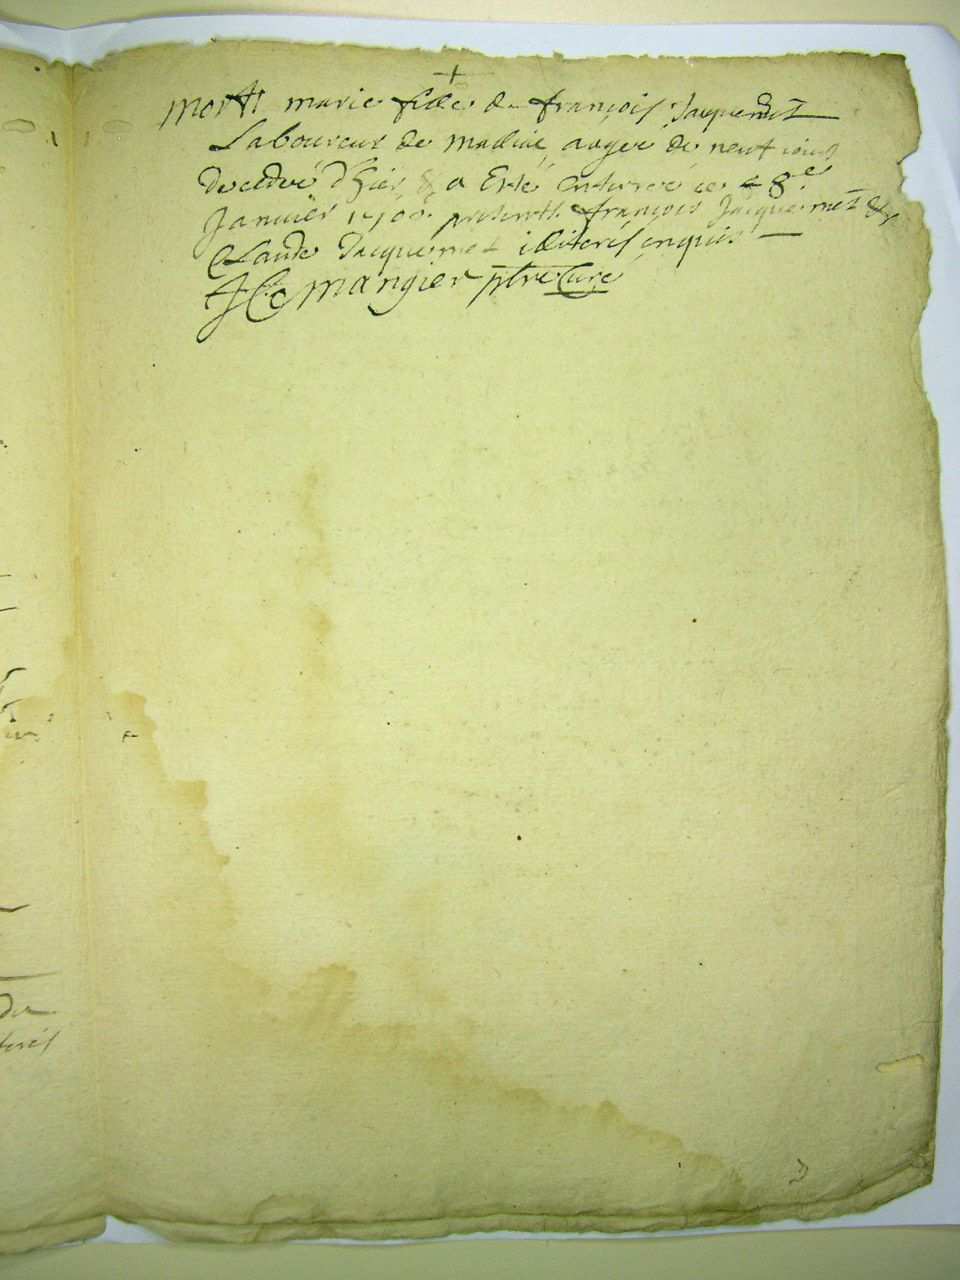 +
mort marie fille de françois Jacquemet
Laboureur de aagée de neuf jours
decedée d'hier & a Esté enterrée ce 8e
Janvier presents françois Jacquemet &
Claude Jacquemet iliterés enquis
mangier ptre Curé